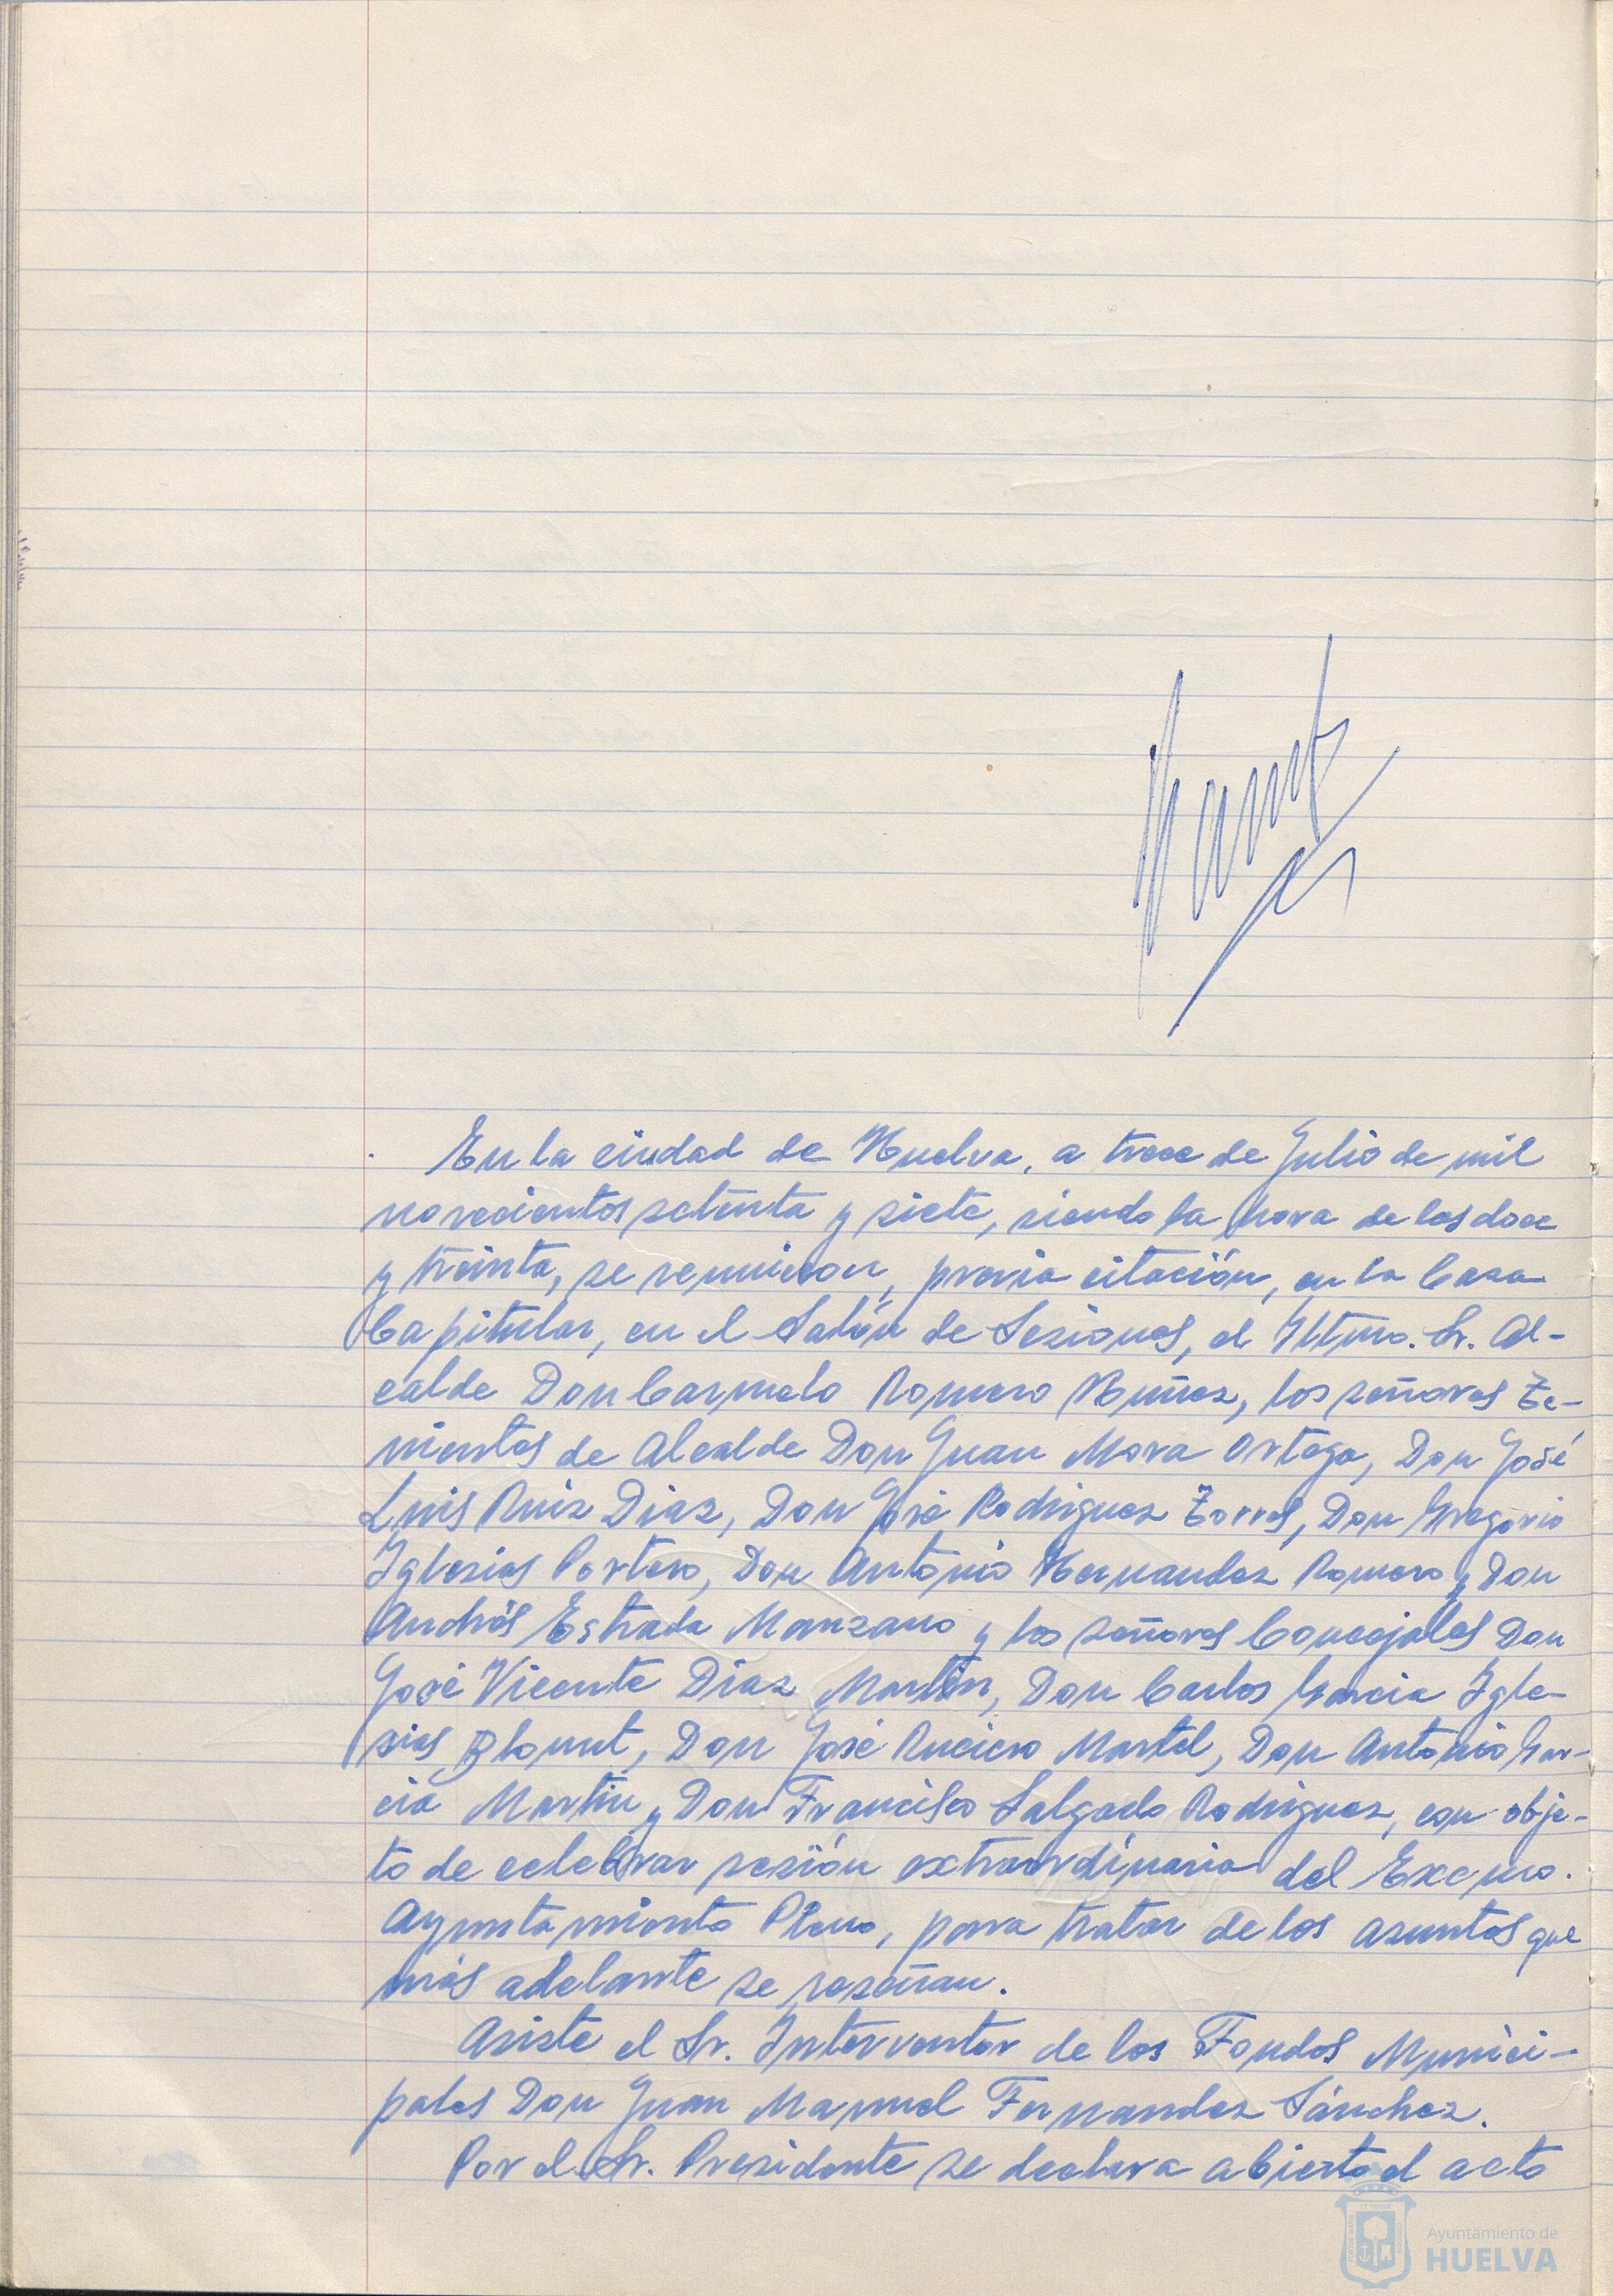 En la ciudad de Huelva, a trece de Julio de mil
novecientos setenta y siete, siendo la hora de las doce
y treinta, se reunieron, previa citación, en la Casa
Capitular, en el Salón de Sesiones, el Iltmo. Sr. Al-
calde Don Carmelo Romero Nuñez, los señores Te-
nientes de Alcalde Don Juan Mora Ortega, Don José
Luis Ruiz Diaz, Don José Rodriguez Torres, Don Gregorio
Iglesias Portero, Don Antonio Hernandez Romero y Don
Andrés Estrada Manzano y los señores Concejales Don
José Vicente Diaz Martin, Don Carlos Garcia Igle-
sias Blount, Don José Ruciero Martel, Don Antonio Gar-
cia Martin y Don Francisco Salgado Rodriguez, con obje-
to de celebrar sesión extraordinaria del Excmo.
Ayuntamiento Pleno, para tratar de los asuntos que
más adelante se reseñan.
Asiste el Sr. Interventor de los Fondos Munici-
pales Don Juan Manuel Fernandez Sánchez.
Por el Sr. Presidente se declara abierto el acto
Ayuntamiento de
HUELVA